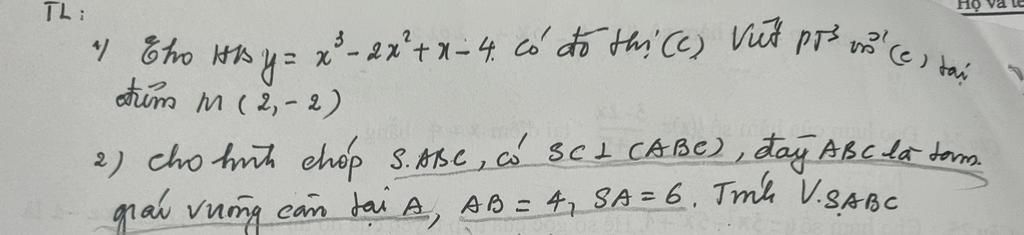 Họ và tê
TL:
1) Cho HS y = x³ - 2x² + x - 4. có đồ thị (C) Viết PT³ của (C) tại
điểm M (2, -2)
2) cho hình chóp S.ABC, có SC ⊥ (ABC), đáy ABC là tam
giác vuông cân tại A, AB = 4, SA = 6. Tính V.SABC